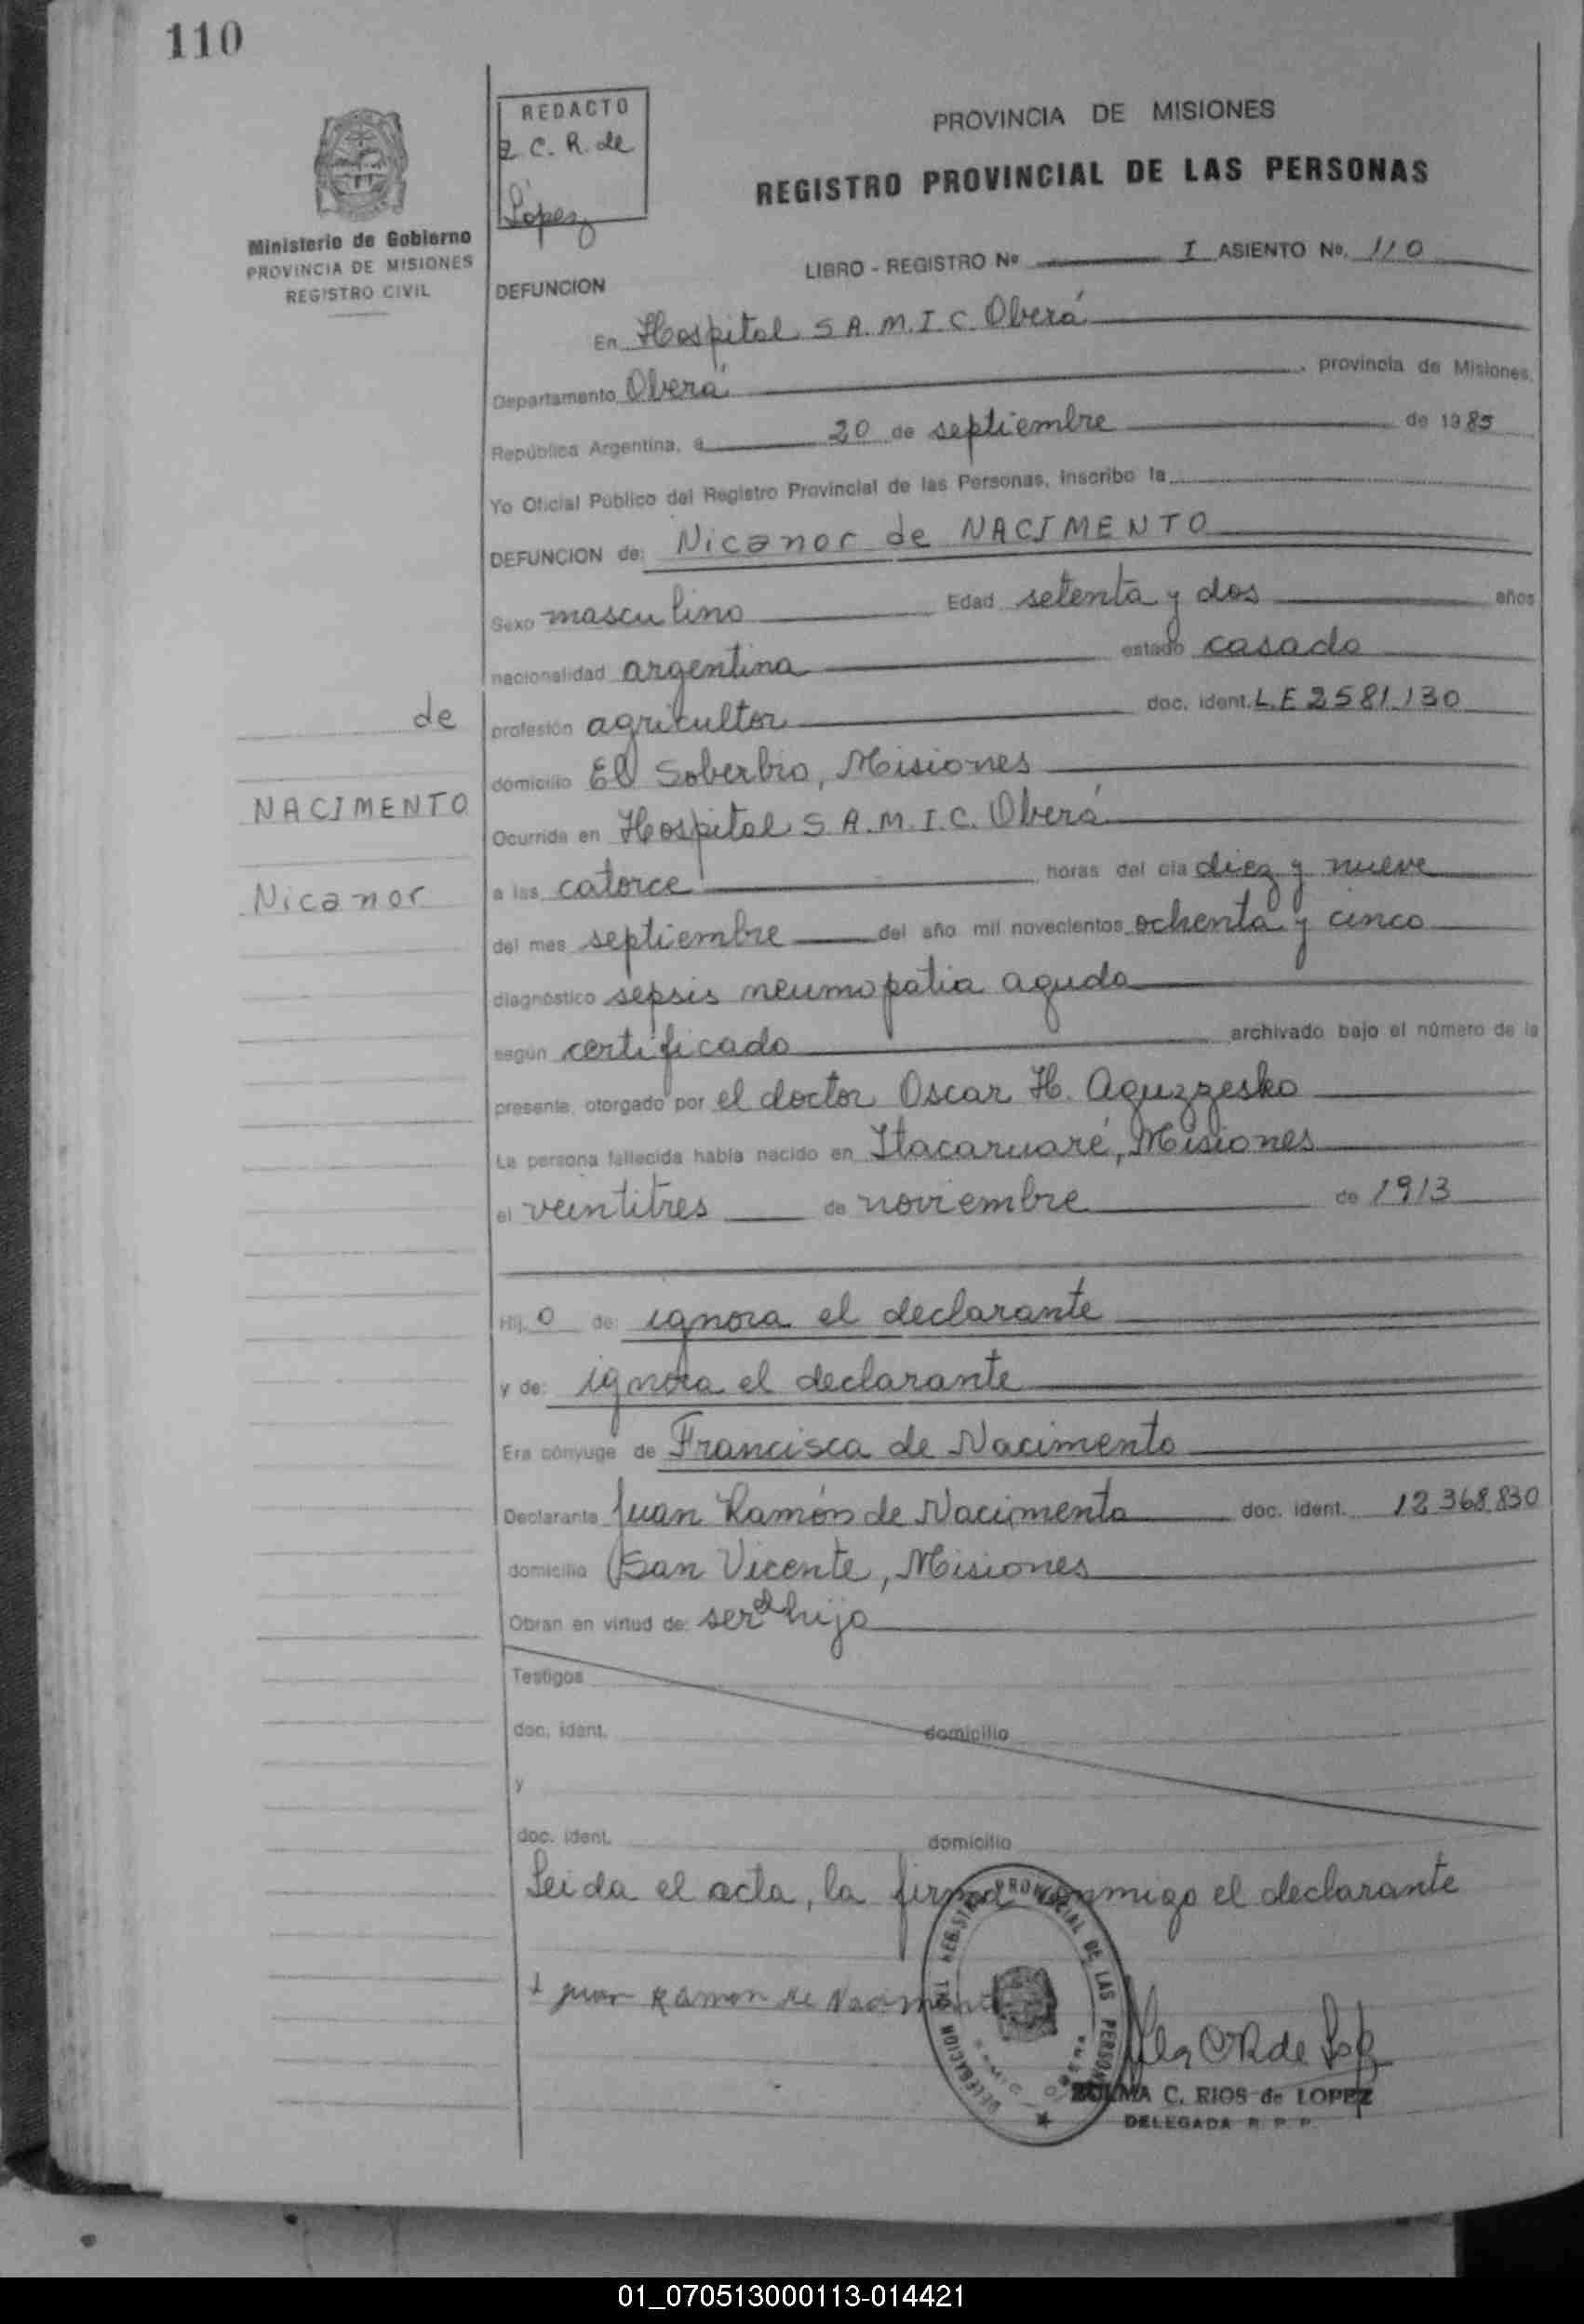 110
REDACTO
Z. C. R. de
López
Ministerio de Gobierno
PROVINCIA DE MISIONES
REGISTRO CIVIL
PROVINCIA DE MISIONES
REGISTRO PROVINCIAL DE LAS PERSONAS
LIBRO - REGISTRO Nº I ASIENTO Nº. 110
DEFUNCION
En Hospital S.A.M.I.C. Oberá
Departamento Oberá, provincia de Misiones,
República Argentina, a 20 de septiembre de 1985
Yo Oficial Público del Registro Provincial de las Personas, inscribo la
DEFUNCION de: Nicanor de NACIMENTO
Sexo masculino Edad setenta y dos años
nacionalidad argentina estado casado
profesión agricultor doc. ident. L.E 2581.130
domicilio El Soberbio, Misiones
Ocurrida en Hospital S.A.M.I.C. Oberá
a las catorce horas del día diez y nueve
del mes septiembre del año mil novecientos ochenta y cinco
diagnóstico sepsis neumopatia aguda
según certificado archivado bajo el número de la
presente, otorgado por el doctor Oscar H. Aguzzesko
La persona fallecida había nacido en Itacaruaré, Misiones
el veintitres de noviembre de 1913
Hij o de: ignora el declarante
y de: ignora el declarante
Era cónyuge de Francisca de Nacimento
Declarante Juan Ramón de Nacimento doc. ident. 12.368.830
domicilio San Vicente, Misiones
Obran en virtud de: ser el hijo
Testigos
doc. ident. domicilio
y
doc. ident. domicilio
Leida el acta, la firma conmigo el declarante
Juan Ramon de Nacimento
REGISTRO PROVINCIAL DE LAS PERSONAS
DELEGACION
ZULMA C. RIOS de LOPEZ
DELEGADA R. P. P.
de
NACIMENTO
Nicanor
01_070513000113-014421